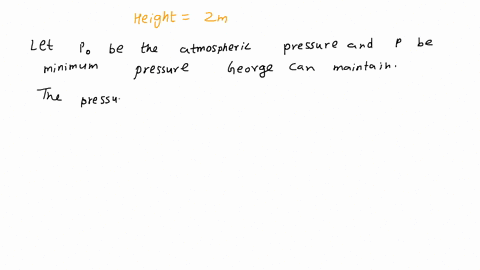 Height = 2m
Let P₀ be the atmospheric pressure and P be
minimum pressure George can maintain.
The pressu